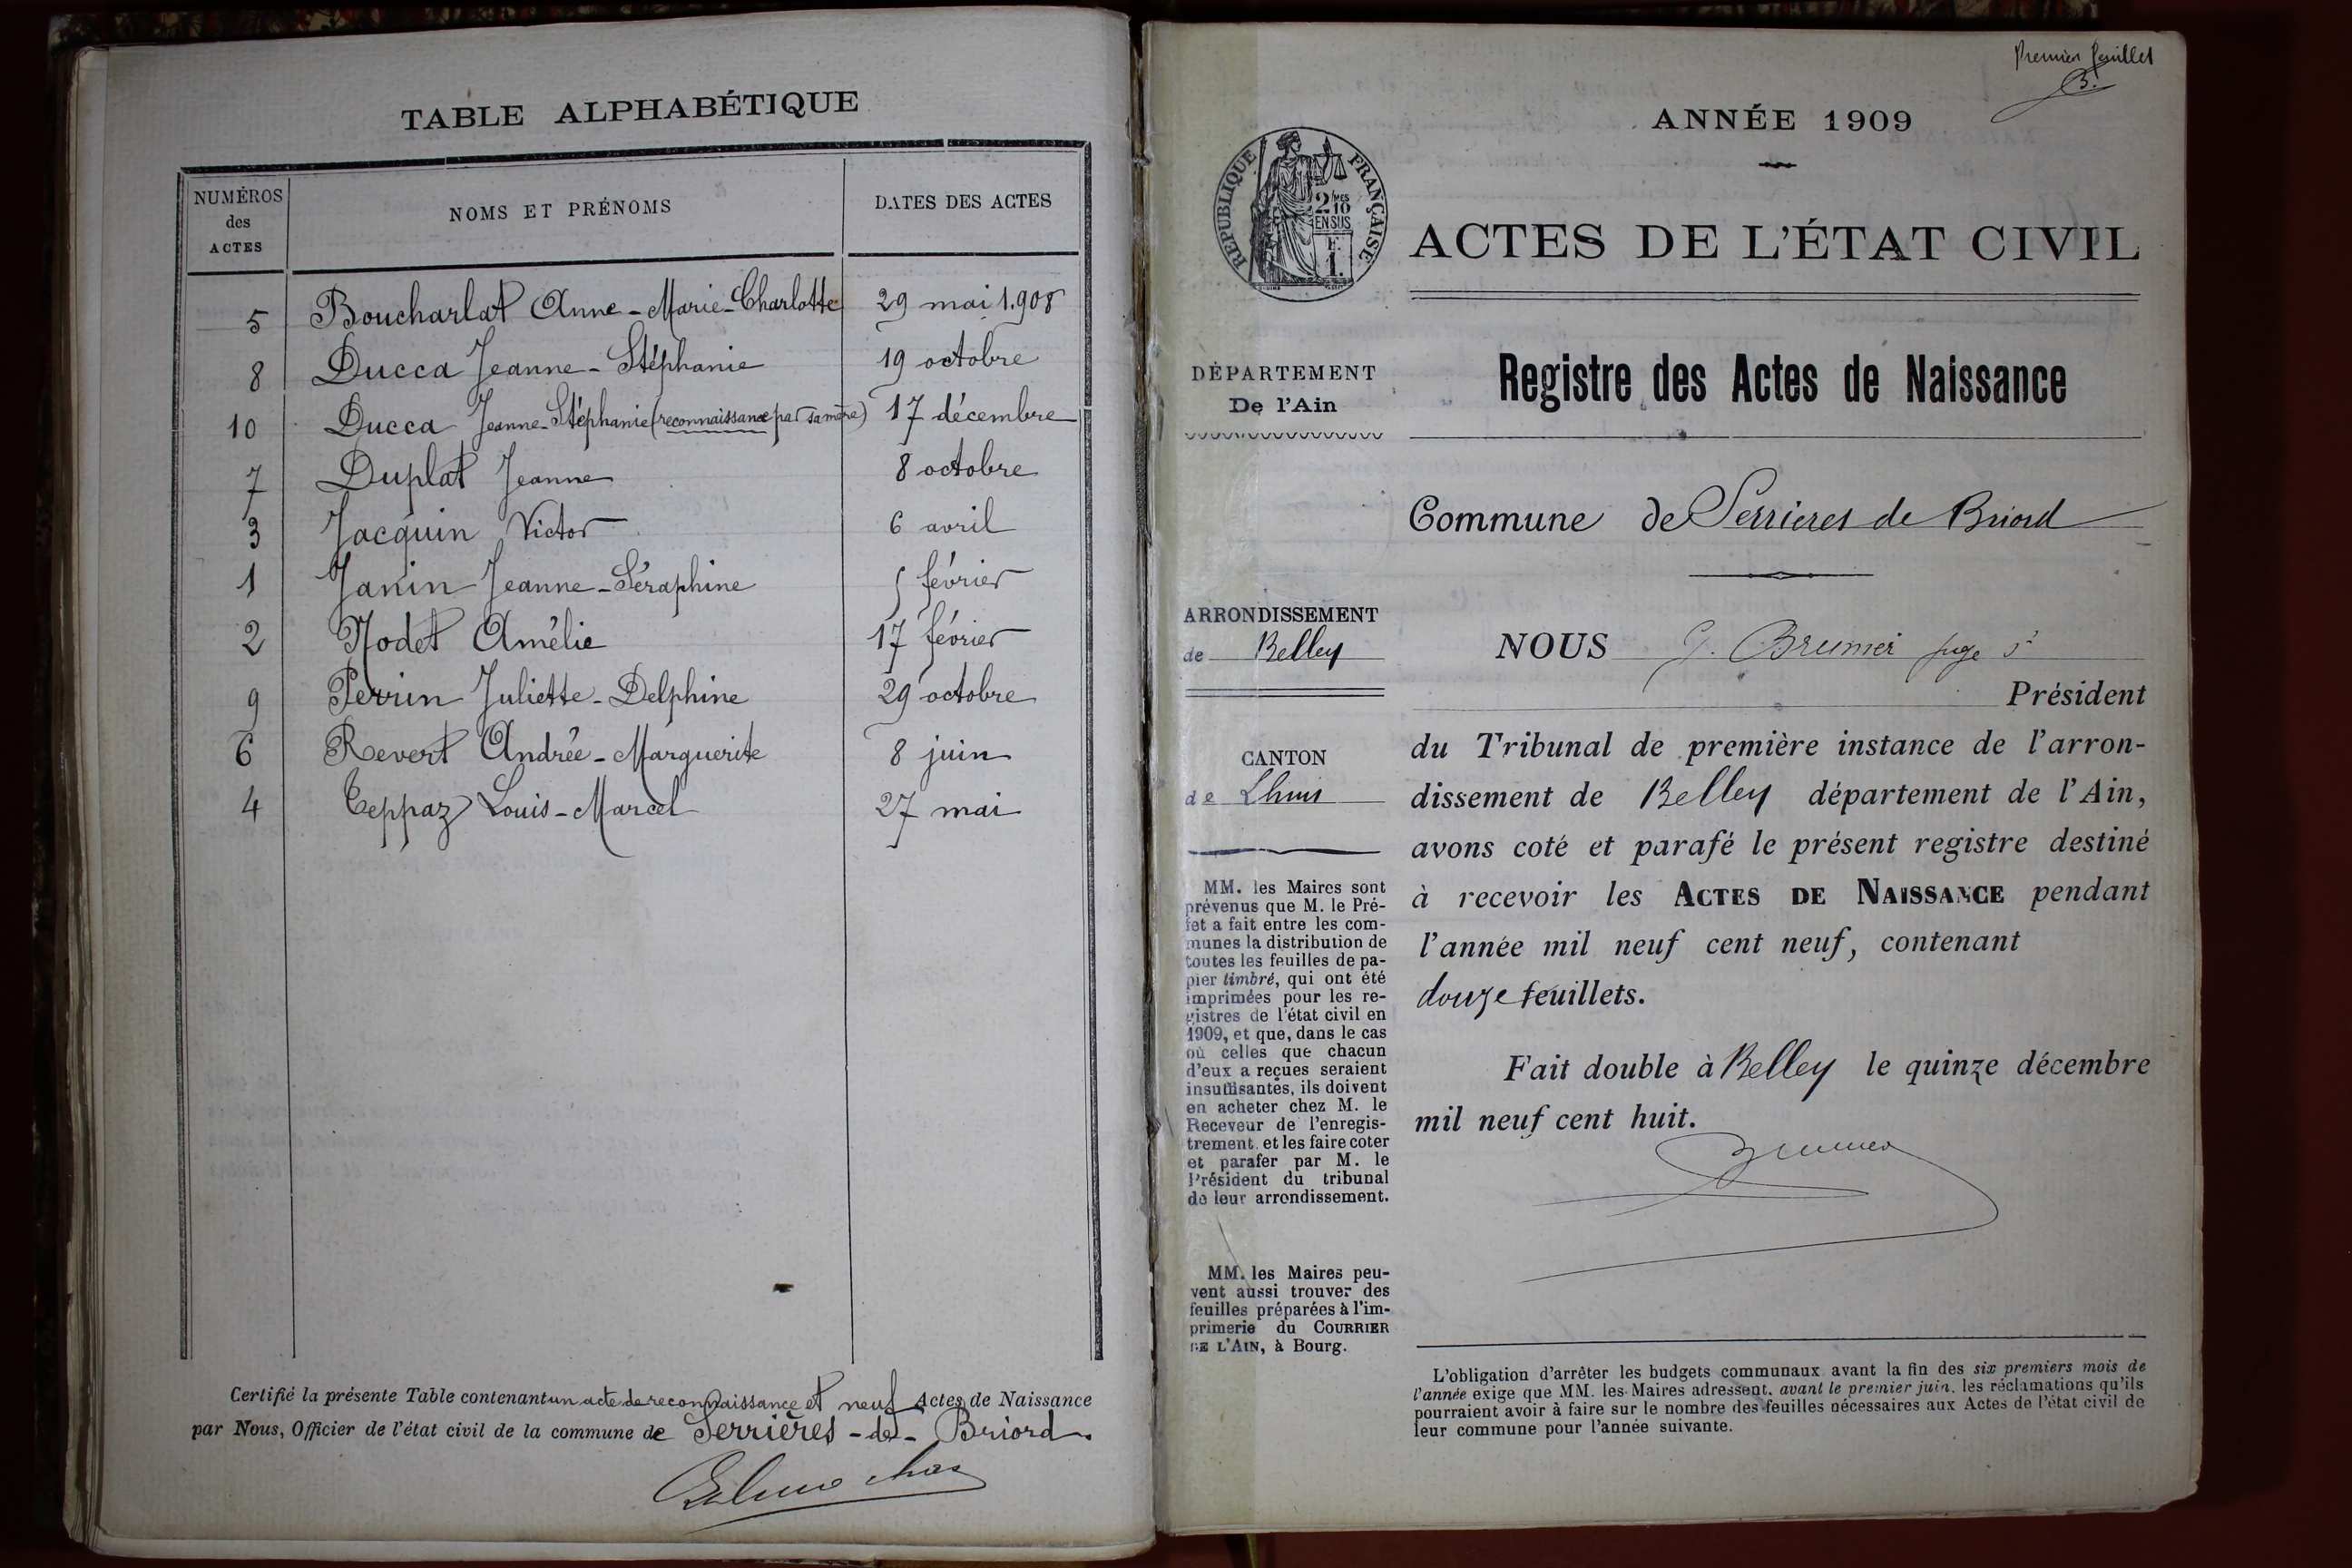 TABLE ALPHABÉTIQUE
NUMÉROS des ACTES
NOMS ET PRÉNOMS
DATES DES ACTES
5 Boucharlat Anne-Marie-Charlotte 29 mai 1.908
8 Ducca Jeanne-Stéphanie 19 octobre
10 Ducca Jeanne-Stéphanie (reconnaissance par sa mère) 17 décembre
7 Duplat Jeanne 8 octobre
3 Jacquin Victor 6 avril
1 Janin Jeanne-Séraphine 5 février
2 Nodet Amélie 17 février
9 Perrin Juliette-Delphine 29 octobre
6 Revert Andrée-Marguerite 8 juin
4 Teppaz Louis-Marcel 27 mai
Certifié la présente Table contenant un acte de reconnaissance et neuf Actes de Naissance
par Nous, Officier de l'état civil de la commune de Serrières-de-Briord.
Premier feuillet
B.
ANNÉE 1909
RÉPUBLIQUE FRANÇAISE
2/10 MES
EN SUS
F.
1.
ACTES DE L'ÉTAT CIVIL
DÉPARTEMENT
De l'Ain
Registre des Actes de Naissance
Commune de Serrieres de Briord
ARRONDISSEMENT
de Belley
CANTON
de Lhuis
MM. les Maires sont
prévenus que M. le Pré-
fet a fait entre les com-
munes la distribution de
toutes les feuilles de pa-
pier timbré, qui ont été
imprimées pour les re-
gistres de l'état civil en
1909, et que, dans le cas
où celles que chacun
d'eux a reçues seraient
insuffisantes, ils doivent
en acheter chez M. le
Receveur de l'enregis-
trement et les faire coter
et parafer par M. le
Président du tribunal
de leur arrondissement.
MM. les Maires peu-
vent aussi trouver des
feuilles préparées à l'im-
primerie du COURRIER
DE L'AIN, à Bourg.
NOUS J. Brunier juge
Président
du Tribunal de première instance de l'arron-
dissement de Belley département de l'Ain,
avons coté et parafé le présent registre destiné
à recevoir les ACTES DE NAISSANCE pendant
l'année mil neuf cent neuf, contenant
douze feuillets.
Fait double à Belley le quinze décembre
mil neuf cent huit.
Brunier
L'obligation d'arrêter les budgets communaux avant la fin des six premiers mois de
l'année exige que MM. les Maires adressent, avant le premier juin, les réclamations qu'ils
pourraient avoir à faire sur le nombre des feuilles nécessaires aux Actes de l'état civil de
leur commune pour l'année suivante.